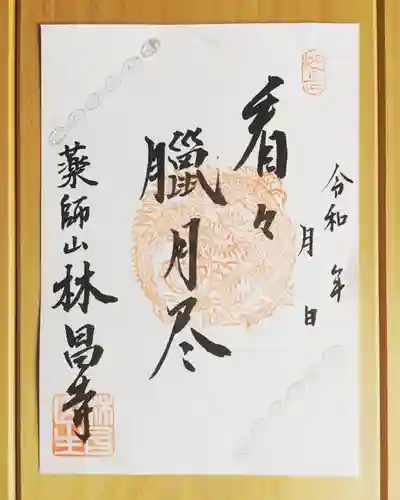 令和 年 月 日
看々
臘月尽
薬師山林昌寺